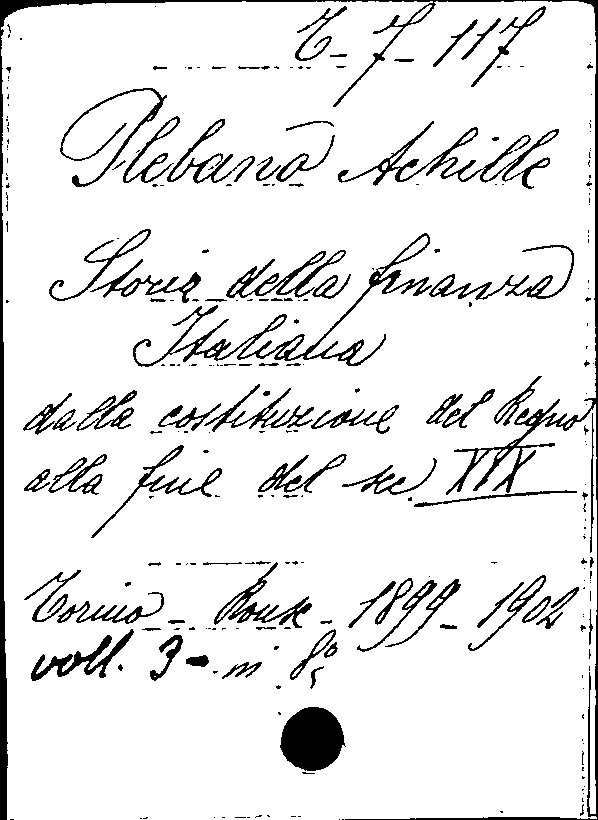 C-7-117
Plebano Achille
Storia della finanza
Italiana
dalla costituzione del Regno
alla fine del sec. XIX
Torino - Roux - 1899 - 1902
voll. 3 - in 8°